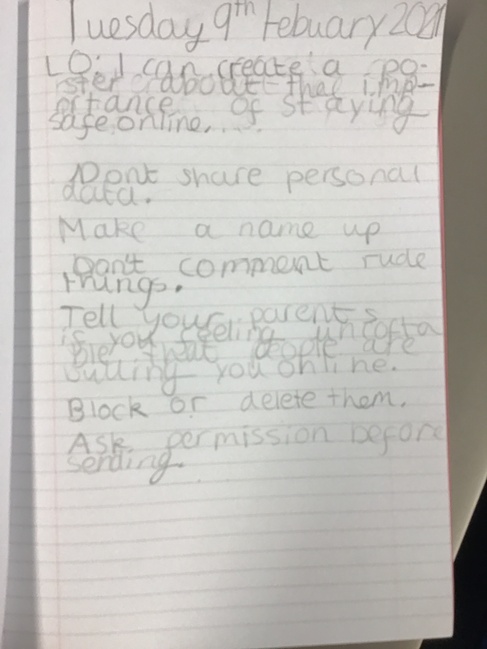 Tuesday 9th Febuary 2021
LO: I can create a po-
ster about the imp-
ortance of staying
safe online.....
Dont share personal
data.
Make a name up
Don't comment rude
things.
Tell your parents
if you feeling uncorfta
ble that people are
bulling you online.
Block or delete them.
Ask permission before
sending.